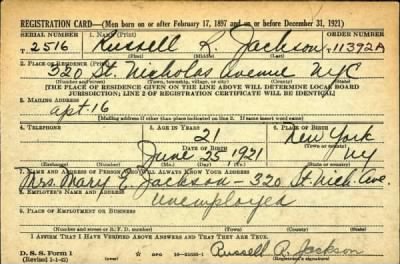 REGISTRATION CARD—(Men born on or after February 17, 1897 and on or before December 31, 1921)
SERIAL NUMBER 1. NAME (Print) ORDER NUMBER
2516 Russell R. Jackson 11392A
(First) (Middle) (Last)
2. PLACE OF RESIDENCE (Print)
320 St. Nicholas Avenue NYC
(Number and street) (Town, township, village, or city) (County) (State)
[THE PLACE OF RESIDENCE GIVEN ON THE LINE ABOVE WILL DETERMINE LOCAL BOARD
JURISDICTION; LINE 2 OF REGISTRATION CERTIFICATE WILL BE IDENTICAL]
3. MAILING ADDRESS
apt. 16
[Mailing address if other than place indicated on line 2. If same insert word same]
4. TELEPHONE 5. AGE IN YEARS 6. PLACE OF BIRTH
21 New York
DATE OF BIRTH (Town or county)
June 25 1921 NY
(Exchange) (Number) (Mo.) (Day) (Yr.) (State or country)
7. NAME AND ADDRESS OF PERSON WHO WILL ALWAYS KNOW YOUR ADDRESS
Mrs. Mary E. Jackson — 320 St. Nich. Ave.
8. EMPLOYER'S NAME AND ADDRESS
Unemployed
9. PLACE OF EMPLOYMENT OR BUSINESS
(Number and street or R. F. D. number) (Town) (County) (State)
I AFFIRM THAT I HAVE VERIFIED ABOVE ANSWERS AND THAT THEY ARE TRUE.
D. S. S. Form 1 GPO Russell R. Jackson
(Revised 1-1-42) (Registrant's signature)